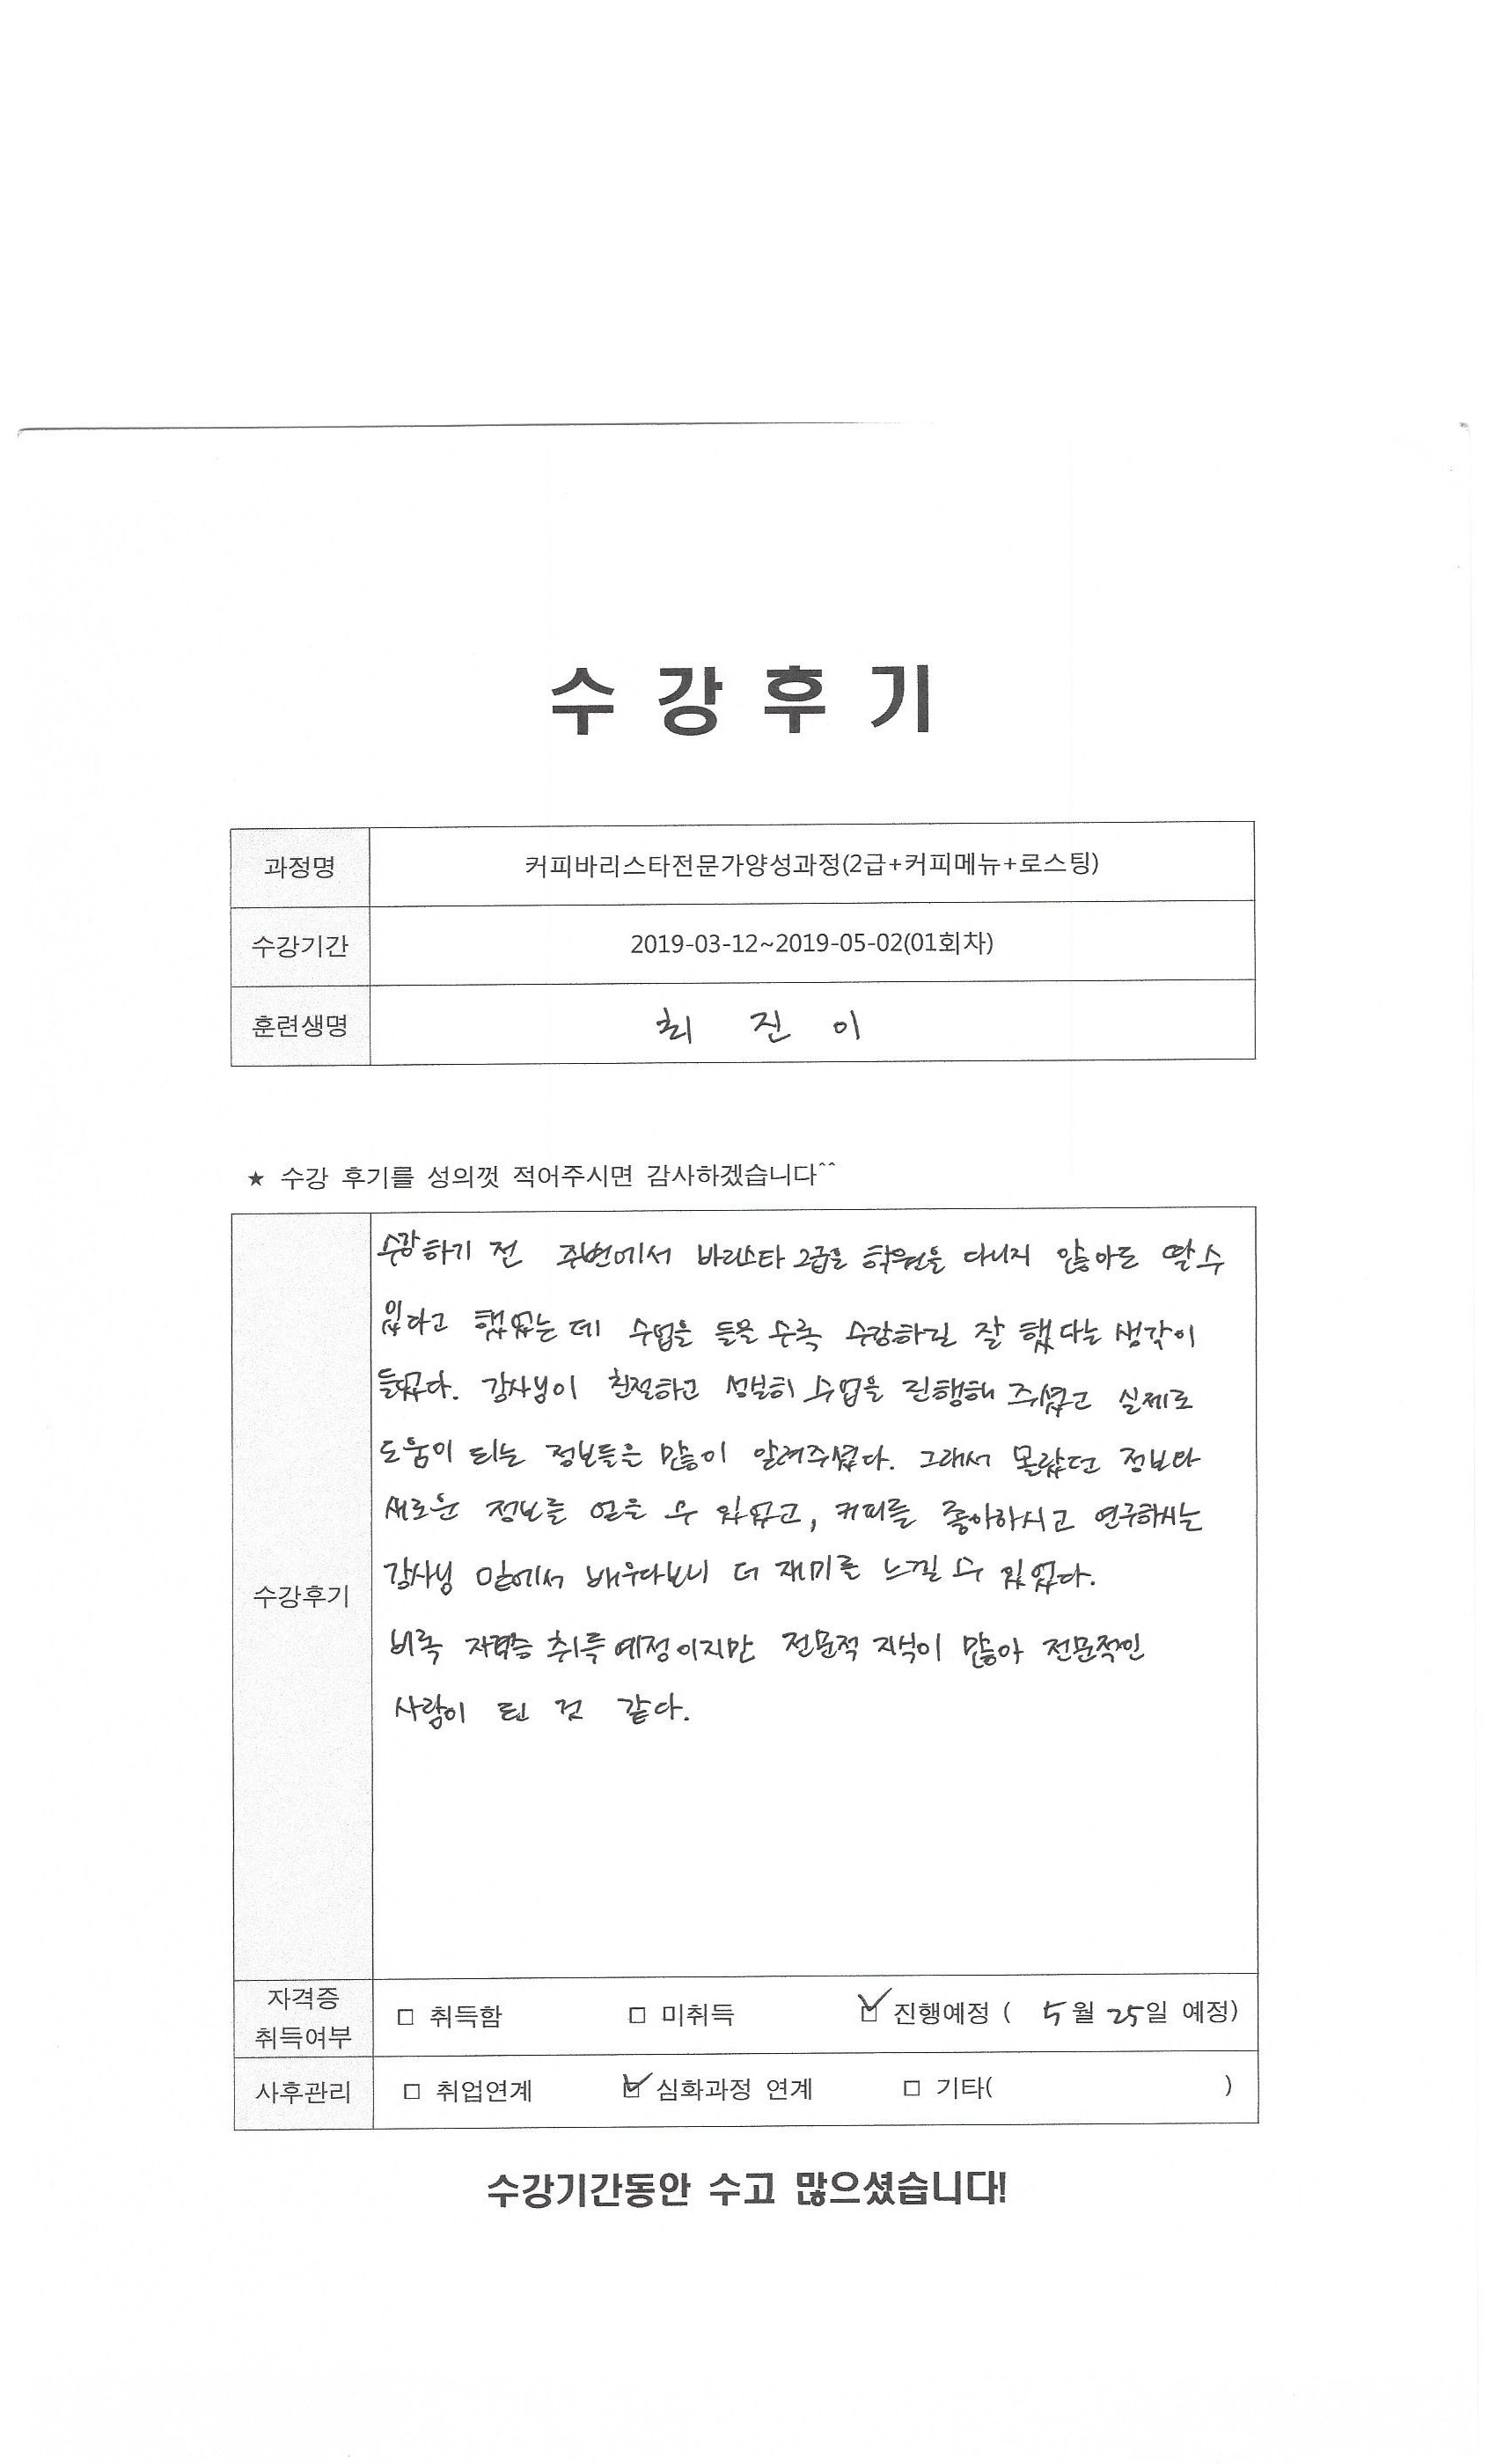 수 강 후 기
과정명 커피바리스타전문가양성과정(2급+커피메뉴+로스팅)
수강기간 2019-03-12~2019-05-02(01회차)
훈련생명 최 진 이
★ 수강 후기를 성의껏 적어주시면 감사하겠습니다^^
수강하기 전 주변에서 바리스타 2급을 학원을 다니지 않아도 딸 수
있다고 했었는 데 수업을 들을 수록 수강하길 잘 했다는 생각이
들었다. 강사님이 친절하고 성실히 수업을 진행해 주셨고 실제로
도움이 되는 정보들은 많이 알려주셨다. 그래서 몰랐던 정보와
새로운 정보를 얻을 수 있었고, 커피를 좋아하시고 연구하시는
강사님 앞에서 배우다보니 더 재미를 느낄 수 있었다.
수강후기
비록 자격증 취득 예정이지만 전문적 지식이 많아 전문적인
사람이 된 것 같다.
자격증
취득여부 □ 취득함 □ 미취득 ☑ 진행예정 ( 5월 25일 예정)
사후관리 □ 취업연계 ☑ 심화과정 연계 □ 기타( )
수강기간동안 수고 많으셨습니다!